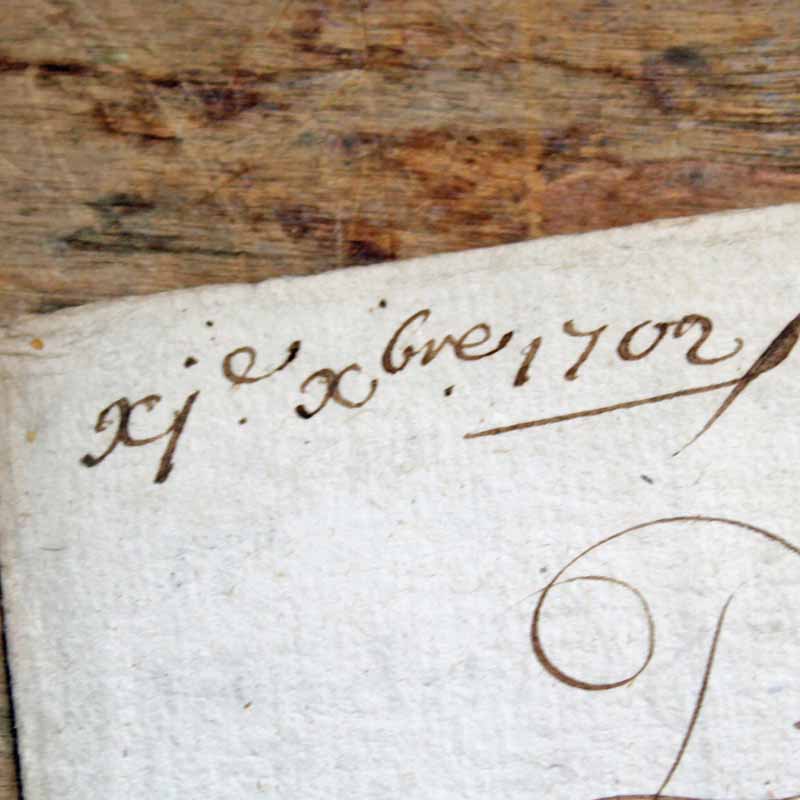 xjᵉ. xᵇʳᵉ. 1702